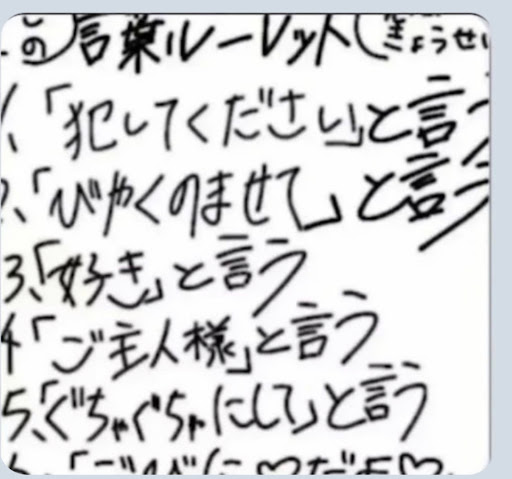 の言葉ルーレット(きょうせい
1、「犯してください」と言う
2、「びやくのませて」と言う
3、「好き」と言う
4「ご主人様」と言う
5、「ぐちゃぐちゃにして」と言う